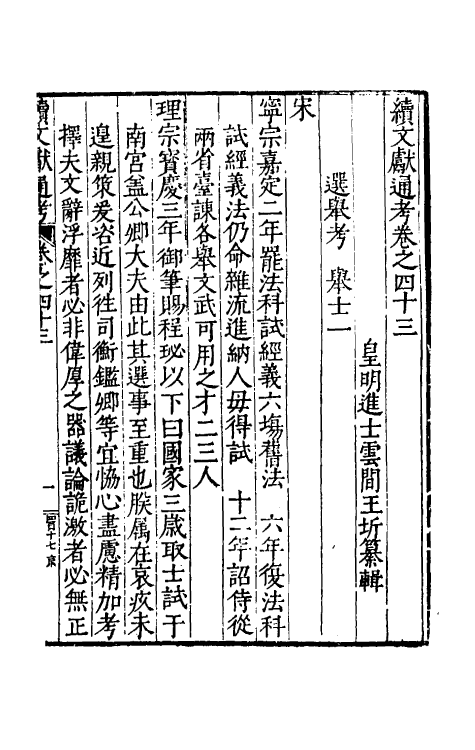 續文獻通考卷之四十三
皇明進士雲間王圻纂輯
選舉考 舉士一
宋
寧宗嘉定二年罷法科試經義六塲舊法 六年復法科
試經義法仍命雜流進納人毋得試 十二年詔侍從
兩省臺諫各舉文武可用之才二三人
理宗寳慶三年御筆賜程珌以下曰國家三歲取士試于
南宮盖公卿大夫由此其選事至重也朕属在哀疚未
遑親策爰咨近列徃司衡鑑卿等宜恊心盡慮精加考
擇夫文辭浮靡者必非偉厚之器議論詭激者必無正
續文獻通考 卷之四十三
一